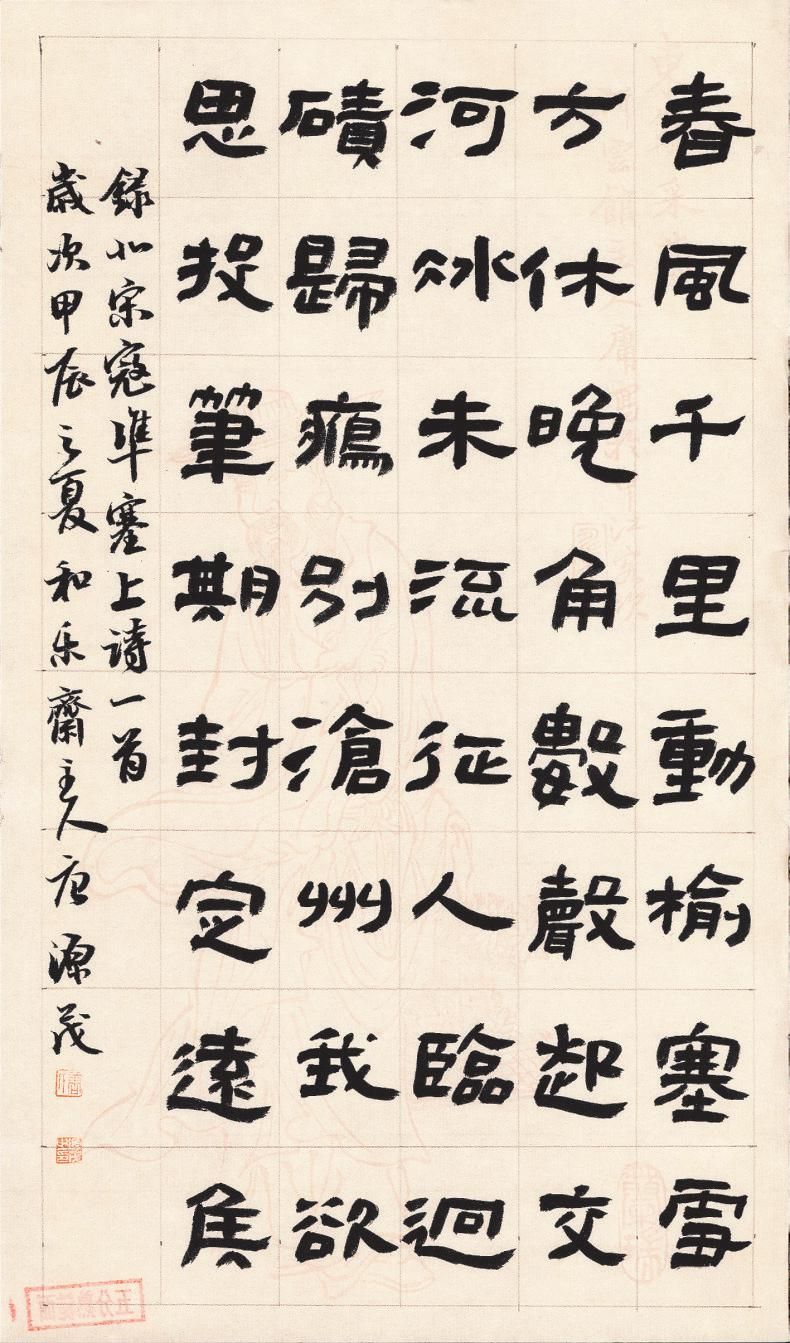 春風千里動榆塞雪
方休晚角數聲起交
河冰未流征人臨迥
磧歸鴈別滄州我欲
思投筆期封定遠侯
錄北宋寇準塞上诗一首
歲次甲辰之夏和乐齋主人唐源茂